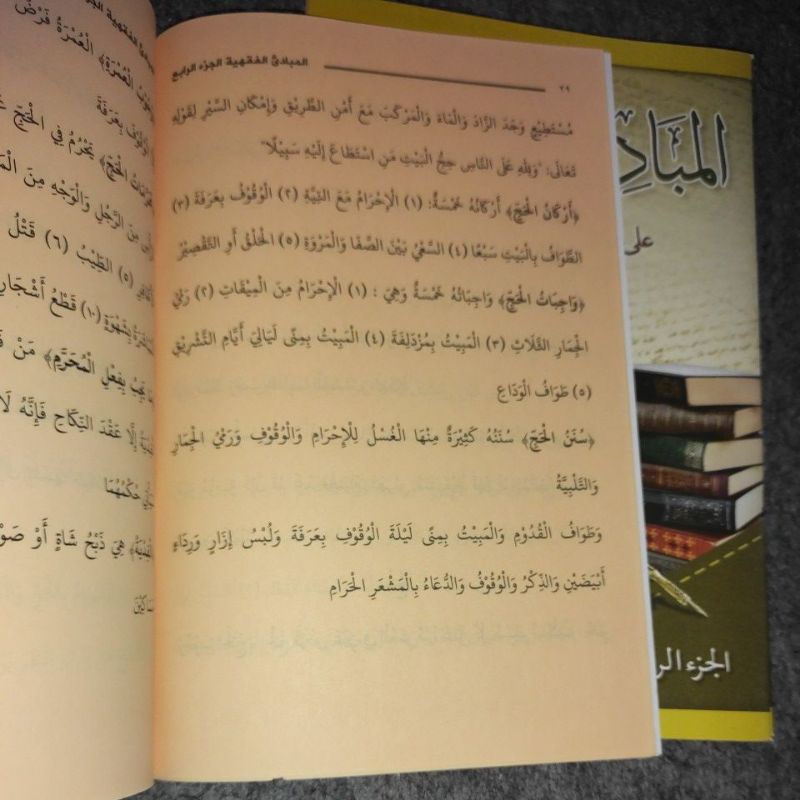 ٢٩
المبادئ الفقهية الجزء الرابع
مُسْتَطِيْعٍ وَجَدَ الزَّادَ وَالْمَاءَ وَالْمَرْكَبَ مَعَ أَمْنِ الطَّرِيْقِ وَإِمْكَانِ السَّيْرِ لِقَوْلِهِ
تَعَالَى: "وَلِلهِ عَلَى النَّاسِ حِجُّ الْبَيْتِ مَنِ اسْتَطَاعَ إِلَيْهِ سَبِيْلًا"
﴿أَرْكَانُ الْحَجّ﴾ أَرْكَانُهُ خَمْسَةٌ: (١) الْإِحْرَامُ مَعَ النِّيَّةِ (٢) الْوُقُوْفُ بِعَرَفَةَ (٣)
الطَّوَافُ بِالْبَيْتِ سَبْعًا (٤) السَّعْيُ بَيْنَ الصَّفَا وَالْمَرْوَةِ (٥) الْحَلْقُ أَوِ التَّقْصِيْرُ
﴿وَاجِبَاتُ الْحَجّ﴾ وَاجِبَاتُهُ خَمْسَةٌ وَهِيَ : (١) الْإِحْرَامُ مِنَ الْمِيْقَاتِ (٢) رَمْيُ
الْجِمَارِ الثَّلَاثِ (٣) الْمَبِيْتُ بِمُزْدَلِفَةَ (٤) الْمَبِيْتُ بِمِنًى لَيَالِيَ أَيَّامِ التَّشْرِيْقِ
(٥) طَوَافُ الْوَدَاعِ
﴿سُنَنُ الْحَجّ﴾ سُنَنُهُ كَثِيْرَةٌ مِنْهَا الْغُسْلُ لِلْإِحْرَامِ وَالْوُقُوْفِ وَرَمْيُ الْجِمَارِ
وَالتَّلْبِيَّةُ
وَطَوَافُ الْقُدُوْمِ وَالْمَبِيْتُ بِمِنًى لَيْلَةَ الْوُقُوْفِ بِعَرَفَةَ وَلُبْسُ إِزَارٍ وَرِدَاءٍ
أَبْيَضَيْنِ وَالذِّكْرُ وَالْوُقُوْفُ وَالدُّعَاءُ بِالْمَشْعَرِ الْحَرَامِ
الْعُمْرَةِ﴾ الْعُمْرَةُ فَرْضٌ
الْوُقُوْفُ بِعَرَفَةَ
الْحَجّ﴾ تَحْرُمُ فِي الْحَجّ
مِنَ الرَّجُلِ وَالْوَجْهِ مِنَ
(٥) الطِّيْبُ (٦) قَتْلُ
بِشَهْوَةٍ (١٠) قَطْعُ أَشْجَارِ
بِفِعْلِ الْمُحَرَّمِ﴾ مَنْ
إِلَّا عَقْدَ النِّكَاحِ فَإِنَّهُ لَا
حُكْمُهُمَا
هِيَ ذَبْحُ شَاةٍ أَوْ
على
الجزء